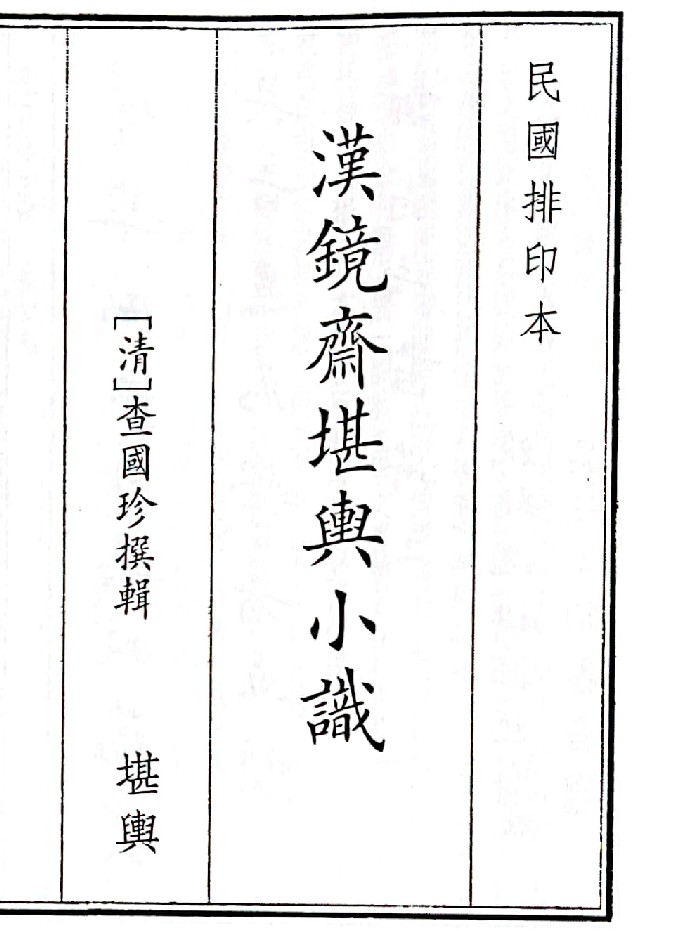 民國排印本
漢鏡齋堪輿小識
[清]查國珍撰輯
堪輿